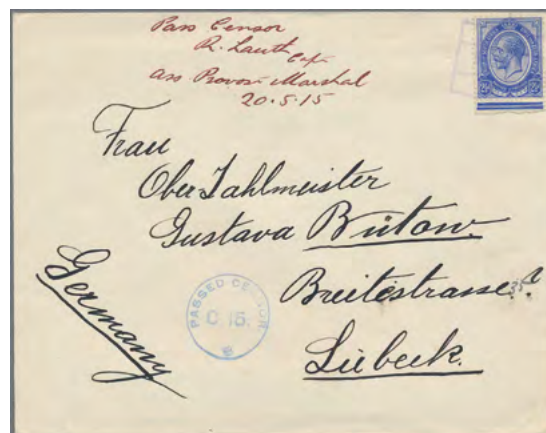 Pass Censor
R. Lauth Capt
Ass Provost Marshal
20.5.15
Frau
Ober Zahlmeister
Gustava Bütow
Breitestrasse 35a
Lübeck.
Germany
PASSED CENSOR
C 15.